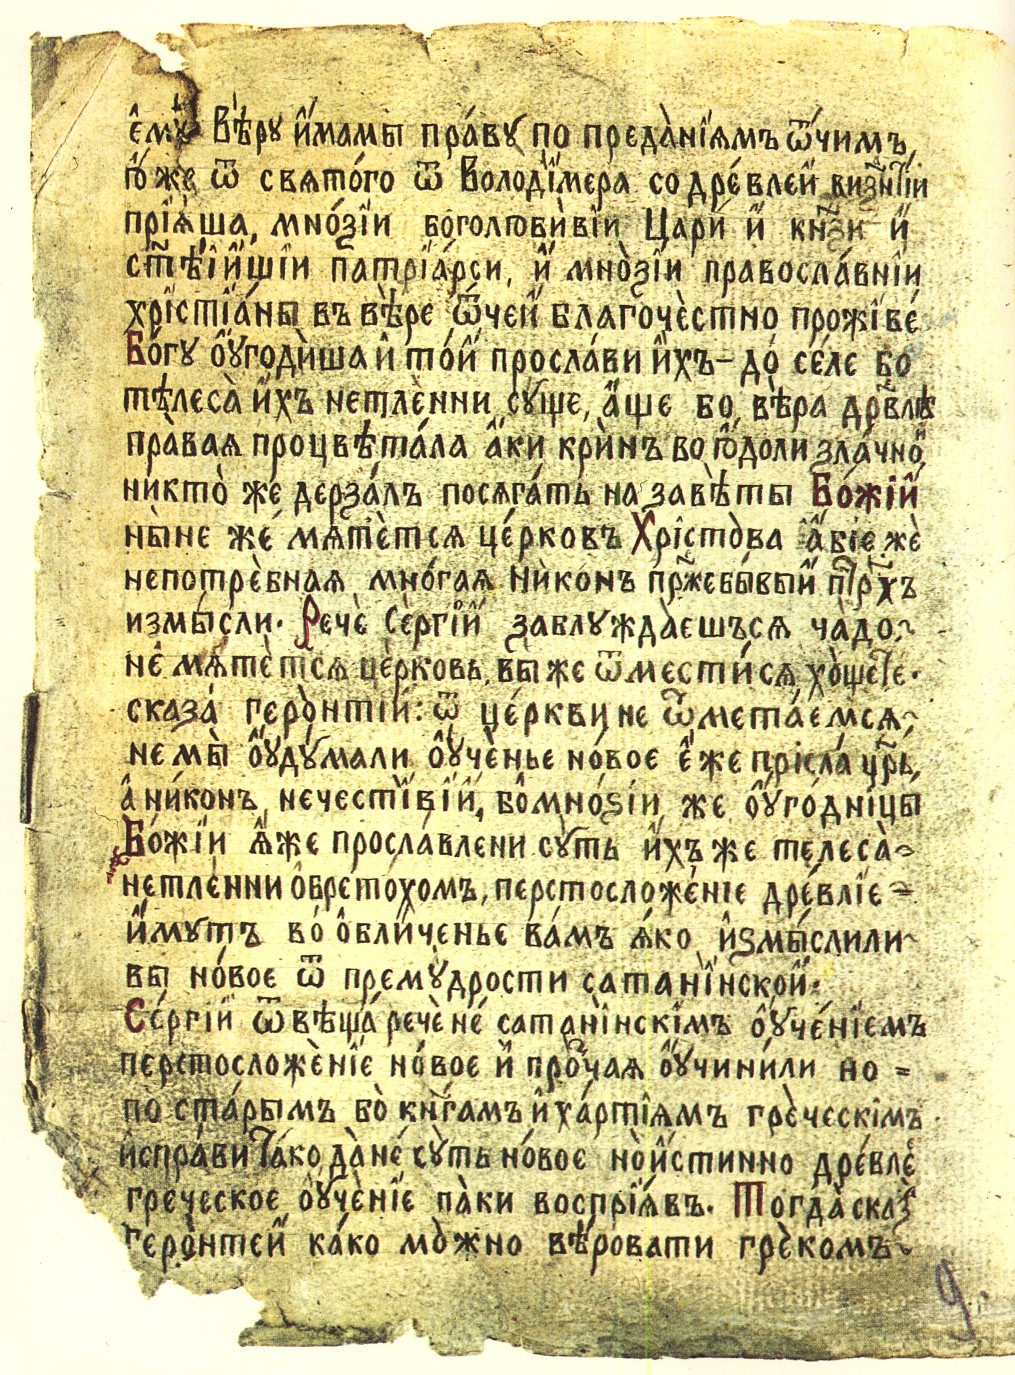 є҆мꙋ̀ Вѣ́рꙋ и҆́мамы пра́вꙋ по преда̀нїямъ ѿ́чимъ,
ю҆́же ѿ свято́го ѿ Володї́мера со дре́влей визнтїи
прїя́ша, мно́зїи боголюби́вїи Цари́ и҆ кн҃зи и҆
ст҃ѣ́йшїи патрїа́рси, и҆ мно̀зїи правосла́внїи
хрїстїа́ны въ вѣ́ре ѿ́чей благочѐстно прожїве́
Бо́гꙋ оу҆годи́ша и҆ то́й просла́ви и҆́хъ– до́ се́ле бо
тѣлеса̀ и҆́хъ нетлѐнни сꙋще, а҆́ще бо вѣ́ра дрѐвлѣ
пра̀вая процвѣта́ла а҆́ки крѝнъ во ю҆до́ли зла́чной
никто̀ же́ дерза́лъ посяга́ть на завѣ́ты Бо́жїй
ны́не же́ мятѐтся це́рковъ Хрїсто̀ва а҆́бїе жѐ
непотрѐбная мно́гая Нѝконъ пр҃жебы́вый птр҃хъ
измы́сли· Речѐ Се́ргїй заблꙋжда̀ешъся ча̀до,
не҆ мятѐтся це́рковь, вы же ѿмести́ся хо̀щете·
сказа́ геро̀нтїй: ѿ це́ркви не ѿмета́емся,
не мы̀ оу҆дꙋ́мали оу҆че́нье но́вое є҆́же присла́ цр҃ь,
а҆ ни́конъ нечести́вїй, бо мно́зїи же оу҆го́дницы
Бо́жїи я҆́же просла́влени сꙋ́ть и҆́хъ же телеса̀
нетле́нни ѡ҆брето́хомъ, перстосложе́нїе дре́влїе =
и҆́мꙋтъ во́ ѡ҆бличе́нье ва́мъ я҆́ко и҆змы́слили
вы но́вое ѿ премꙋ́дрости сатани́нской·
Се́ргїй ѿвѣща́ речѐ не́ сатани̇́нскїмъ оу҆че́нїемъ
перстосложѐнїе но́вое и҆ про̀чая оу҆чини́ли но =
по ста́рымъ бо̀ кни́гамъ и҆ ха́ртїямъ грѐческїмъ
и҆спра́ви та́ко, да̀ не́ сꙋ̀ть но́вое но̀ и҆́стинно дре́вле
гре́ческое оу҆чѐнїе па̀ки воспрїя́въ. Тогда̀ сказ
Геро̀нтей ка́ко мо̀жно вѣ́ровати грѐкомъ
9